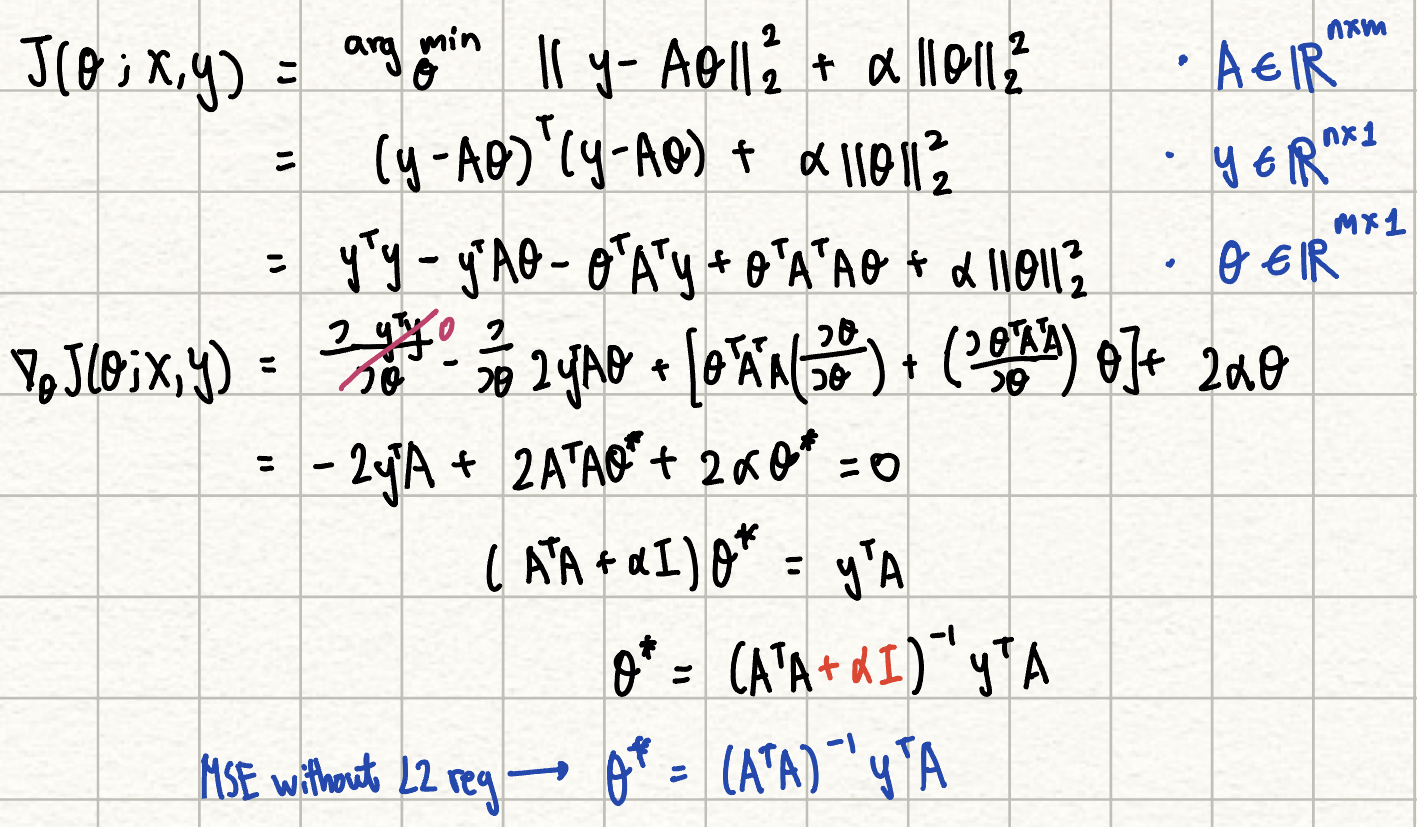 J(θ ; x,y) = arg min_θ || y - Aθ ||₂² + α ||θ||₂² · A ∈ ℝ^{n×m}
= (y - Aθ)ᵀ (y - Aθ) + α ||θ||₂² · y ∈ ℝ^{n×1}
= yᵀy - yᵀAθ - θᵀAᵀy + θᵀAᵀAθ + α ||θ||₂² · θ ∈ ℝ^{m×1}
∇_θ J(θ;x,y) = ∂ yᵀy/∂θ 0 - ∂/∂θ 2yᵀAθ + [θᵀAᵀA(∂θ/∂θ) + (∂θᵀAᵀA/∂θ) θ] + 2αθ
= - 2yᵀA + 2AᵀAθ* + 2αθ* = 0
(AᵀA + αI) θ* = yᵀA
θ* = (AᵀA + αI)⁻¹ yᵀA
MSE without L2 reg → θ* = (AᵀA)⁻¹ yᵀA